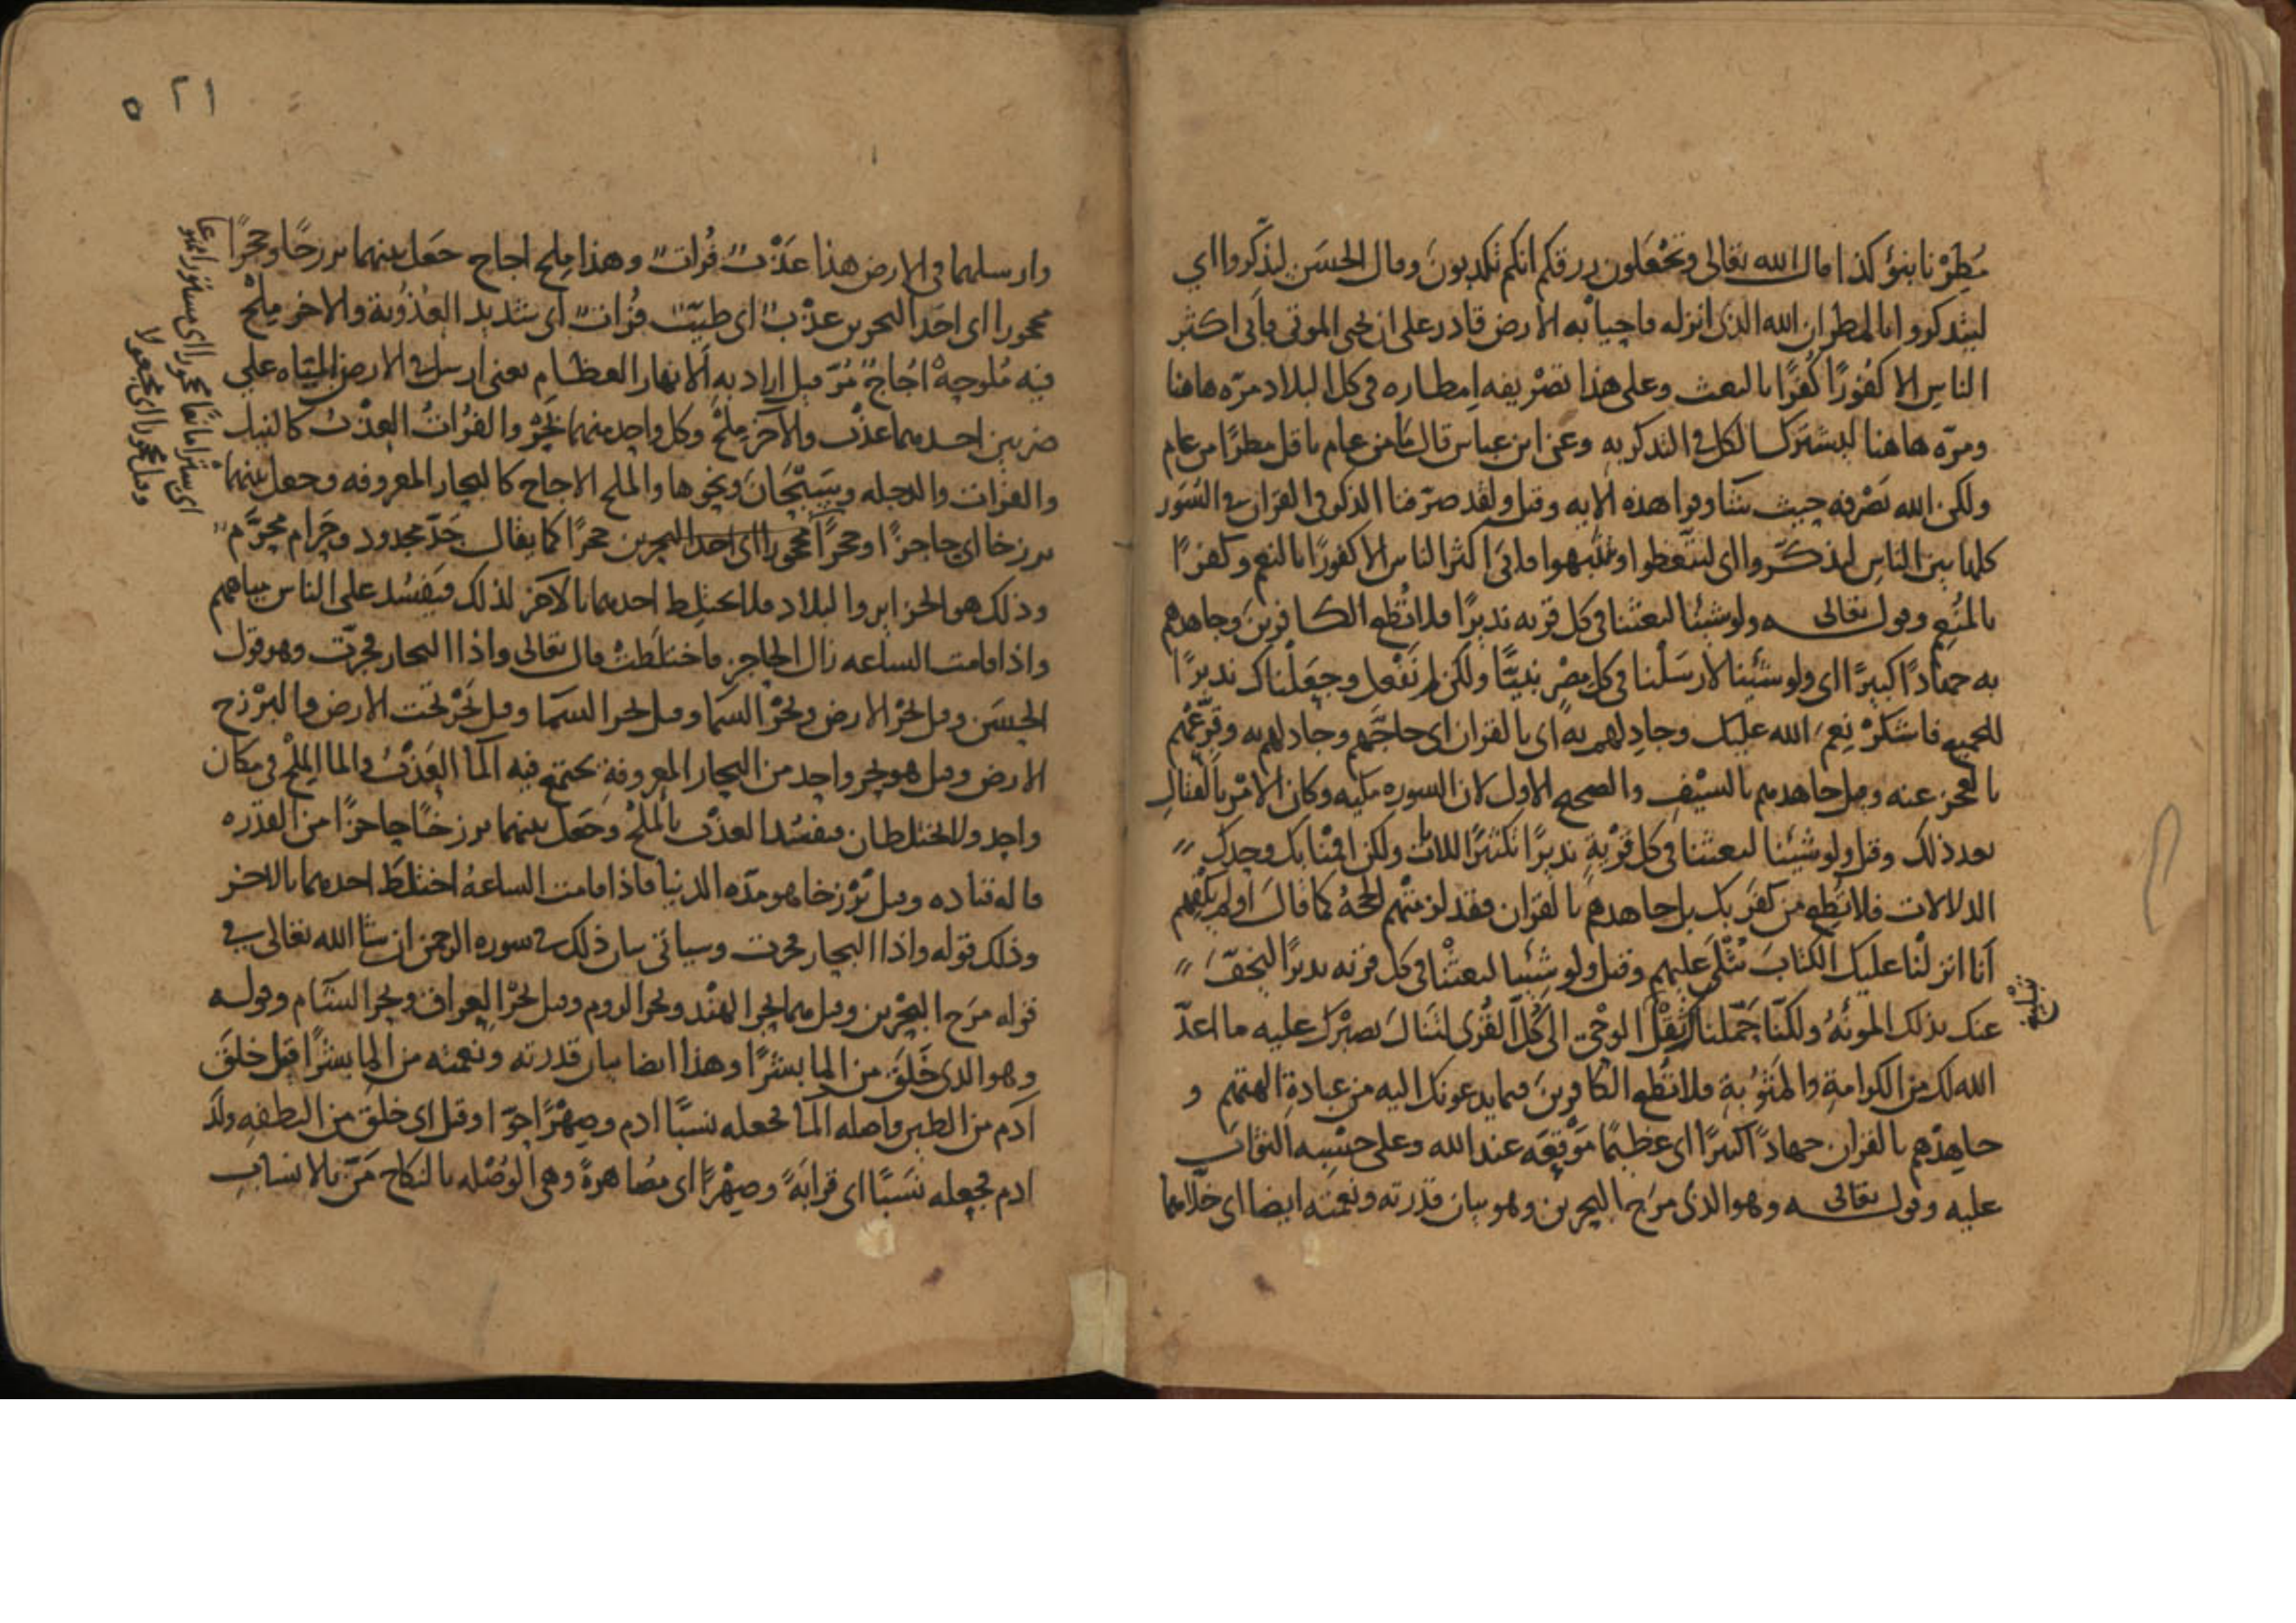 مُطِرْنا بنوْ كذا قال الله تعالى وتجْعَلون رزقكم انكم تكذبونَ وقال الحسَن ليذّكروا اي
ليتذكروا بالمطر ان الله الذى انزله فاحيا به الارض قادر على ان يحيى الموتى فابى اكثر
الناس الا كفُورًا كُفرًا بالبعث وعلى هذا تصْريفه اِمطاره فى كل البلاد مرّه هاهنا
ومرّه هاهنا ليشترك الكل فى التذكر به وعن ابن عباس قال مَا من عام باقل مطرًا من عام
ولكن الله يَصْرفه حيث يشا وقرا هذه الايه وقيل ولقد صرّفنا الذكر فى القران فى السّوَر
كلها بين الناس ليذكّروا اى ليتّعظوا وينتبهوا فابى اكثر الناس الا كفورًا بالنعم وكفرًا
بالمُنعِم وقوله تعالى ولو شئنا لبعثنا فى كل قريه نذيرًا فلا تُطع الكافرينَ وجاهدهم
به جهَادًا كبيرًا اى ولو شئنا لارسَلْنا فى كل مِصْرٍ نبيًّا ولكن لم نفْعل وجعَلْناك نذيرًا
للجميع فاشكرْ نِعَم الله عليك وجادِلهم به اى بالقران اى حاجَّهم وجادلهم به وقرِّعْهُم
بالعجز عنه وقيل جاهدهم بالسيْفِ والصحيح الاول لان السوره مكيه وكان الامْر بالقتال
بعد ذلك وقيل ولو شئنا لبعثنا فى كل قرْيةٍ نذيرًا تكثيرًا للايات ولكن اقمْنا بك وحدك
الدلالات فلا تُطِع من كفرَ بك بل جاهدهم بالقران فقد لزمتْهم الحجهُ كما قالَ اولم يكْفهم
اَنا انزلْنا عليك الكتابَ يُتْلَى عليهم وقيل ولو شئنا لبعثنا فى كل قريه نذيرًا ليخفّ
عنك بذلك المونَهُ ولكنّا حَمّلناك ثِقْلَ الوحْى الى كُلّ القُرى لتنالَ بصبْرك عليه ما اعدّ
الله لك من الكرامةِ والمثوُبةِ فلا تُطع الكافرينَ فيما يدعونك اليه من عبادةِ الهتهم و
جاهِدْهم بالقران جهادًا كبيرًا اى عظيمًا مَوْقِعَه عند الله وعلى حسْبِه الثوابَ
عليه وقوله تعالى وهو الذى مرَج البحرين وهو بيان قدرته ونعمته ايضا اى خلّاهما
تبْليغ
٢١ ٥
وارسلهما فى الارض هذا عَذْبٌ فُراتٌ وهذا مِلح اجاج جعَل بينهما برزخًا وحجرًا
محجورا اى احَد البحرين عذْبٌ اى طيّبٌ فُراتٌ اى شديد العُذوُبة والاخر مِلحٌ
فيه مُلوحةٌ اُجاجٌ مُرّ قيل اراد به الانهار العظام يعنى ارسل فى الارض المياه على
ضربين احدهما عذْب والآخر مِلْحٌ وكل واحد منهما بَحْرٌ والفُراتُ العذْبُ كالنيل
والفرات والدجله وسَيْحَانَ ونحوها والملح الاجاج كالبحار المعروفه وجعل بينهما
برزخا اى حاجزًا وحجرًا محجورا اى احد البحرين حجرًا كما يقال حَدّ محدود وحَرام محرَّم
وذلك هو الجزاير والبلاد فلا يختلِط احدهما بالآخر لذلك فيَفسُد على الناس مياههم
واذا قامت الساعه زال الحاجز فاختلَطتْ قال تعالى واذا البحار فجرّت وهو قول
الحسَن وقيل بحْر الارض وبحْر السمَا وقيل بحر السمَا وقيل بحْر تحت الارض والبرْزخ
الارض وقيل هو بحر واحد من البحار المعروفة يجتمع فيه الما العَذْبُ والما المِلْح فى مكان
واحد ولا يختلطان فيفسُد العذْب بالمِلْحِ وجَعل بينهما برزخًا حاجزًا من القدره
قاله قتاده وقيل برْزخا هو مدّه الدنيا فاذا قامت الساعهُ اختلطَ احدهما بالاخر
وذلك قوله واذا البحار فجرت وسياتى بيان ذلك فى سوره الرحمن ان شا الله تعالى فى
قوله مرَج البحْرين وقيل هما بحر الهنْد وبحر الروم وقيل بحْر العِراق وبحر الشام وقوله
وهو الذى خَلَق من الما بشرًا وهذا ايضا بيان قدرته ونعمته من الما بشرًا قيل خلقَ
آدَم من الطين واصله الما فجعله نسَبًا ادم وصِهْرًا حوّا وقيل اى خلق من النطفه ولدَ
ادم فجعله نسَبًا اى قرابَةً وصِهْرًا اى مُصَاهرةً وهى الوُصْله بالنكاح مَنَّ بالانسابِ
اى سترا مانعًا محجورا اى مستورا ممنوعا
وقيل محجورا اى مجعولا